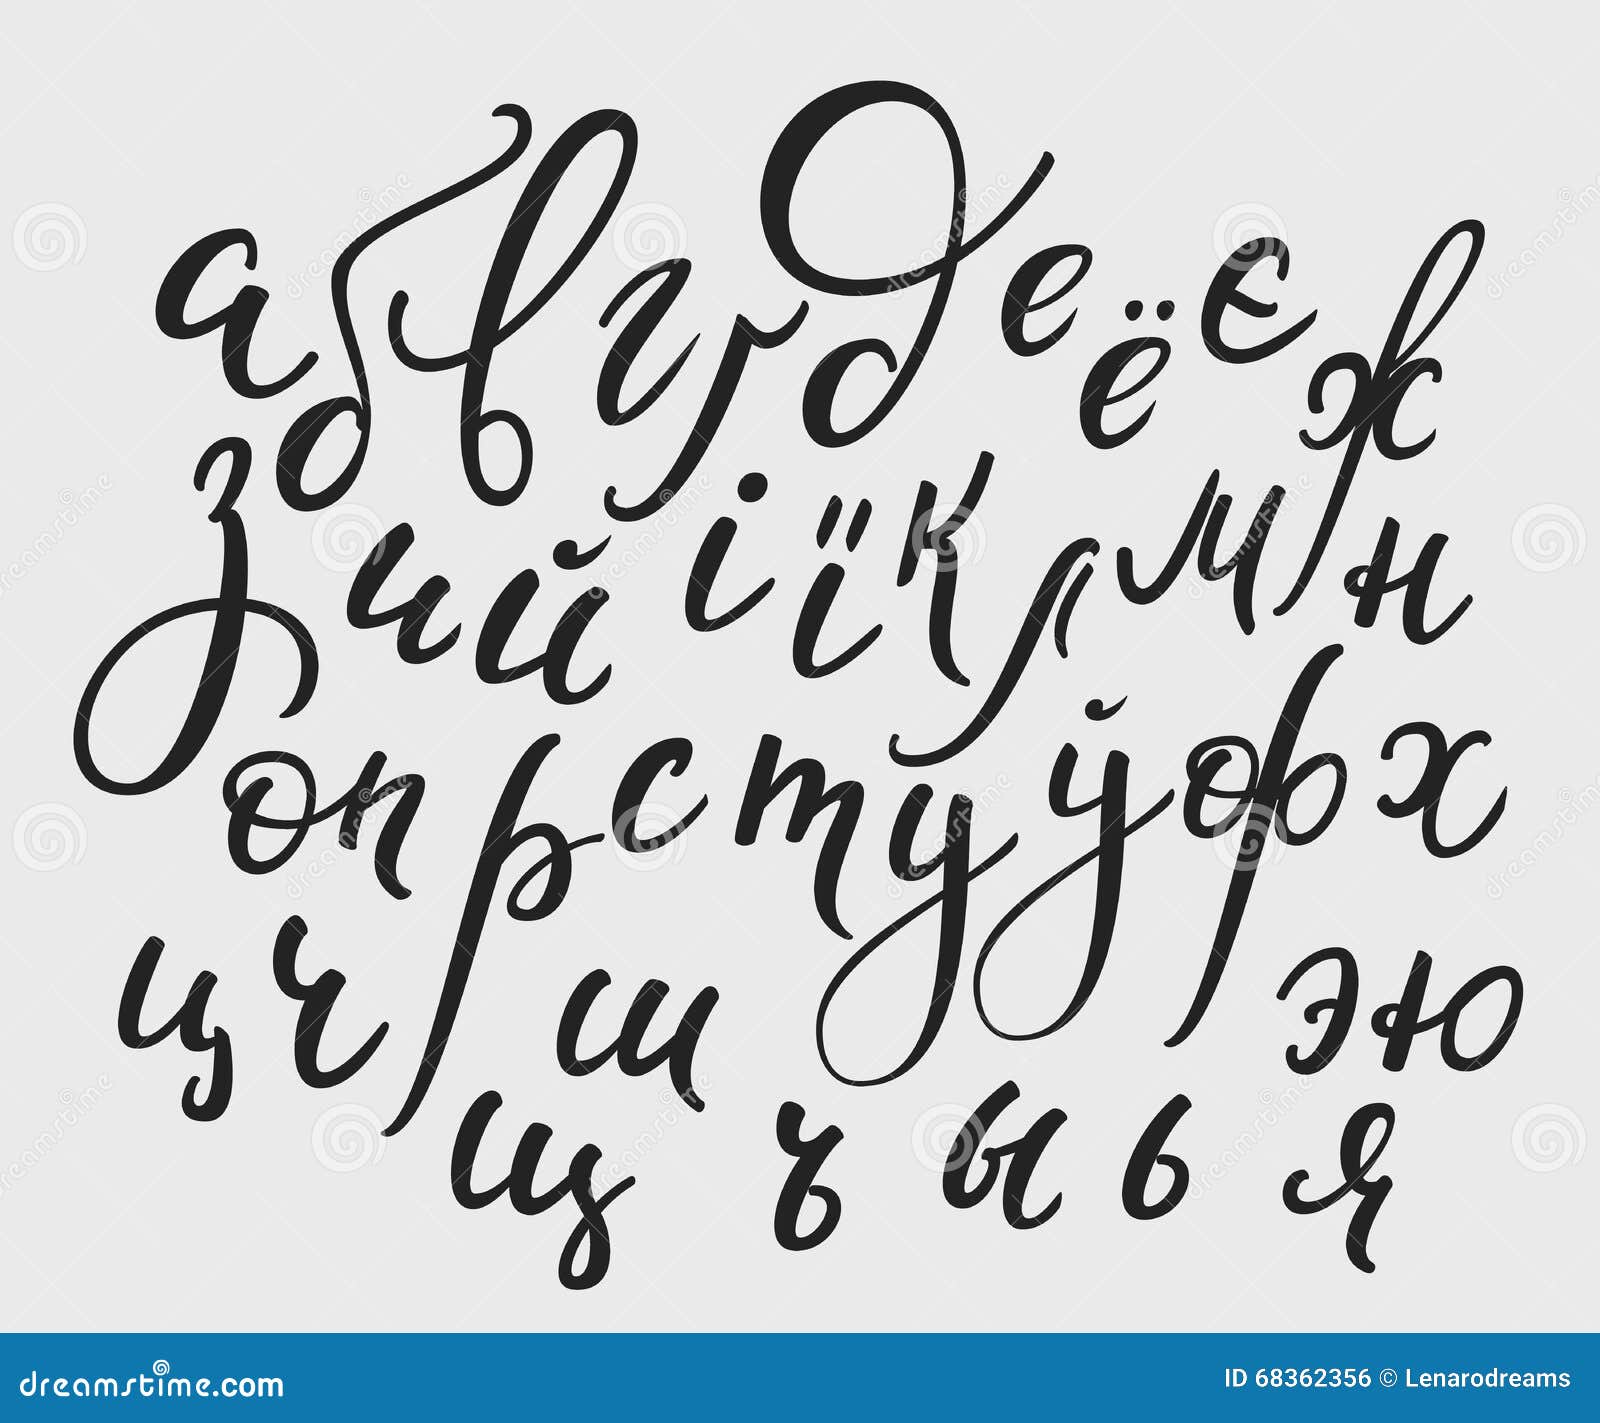 а б в г ґ д е ё є ж
з и й і ї к л м н
о п р с т у ў ф х
ц ч ш щ ъ ы ь э ю я
dreamstime.com
ID 68362356 © Lenarodreams